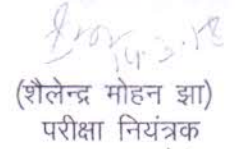 14.3.18
(शैलेन्द्र मोहन झा)
परीक्षा नियंत्रक